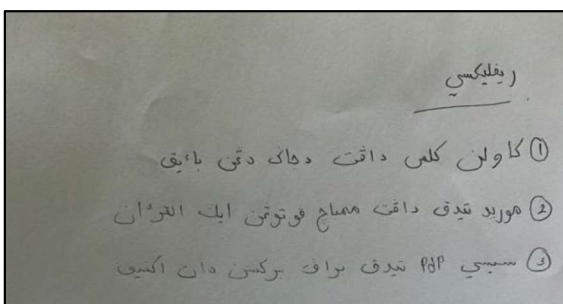 ريفليكسي
① كاولن كلس داڤت دجاݢ دڠن باءيق
② موريد تيدق داڤت ممباچ ڤوتوڠن ايات القرءان
③ سيسي PdP تيدق براڤ بركسن دان اكتيف